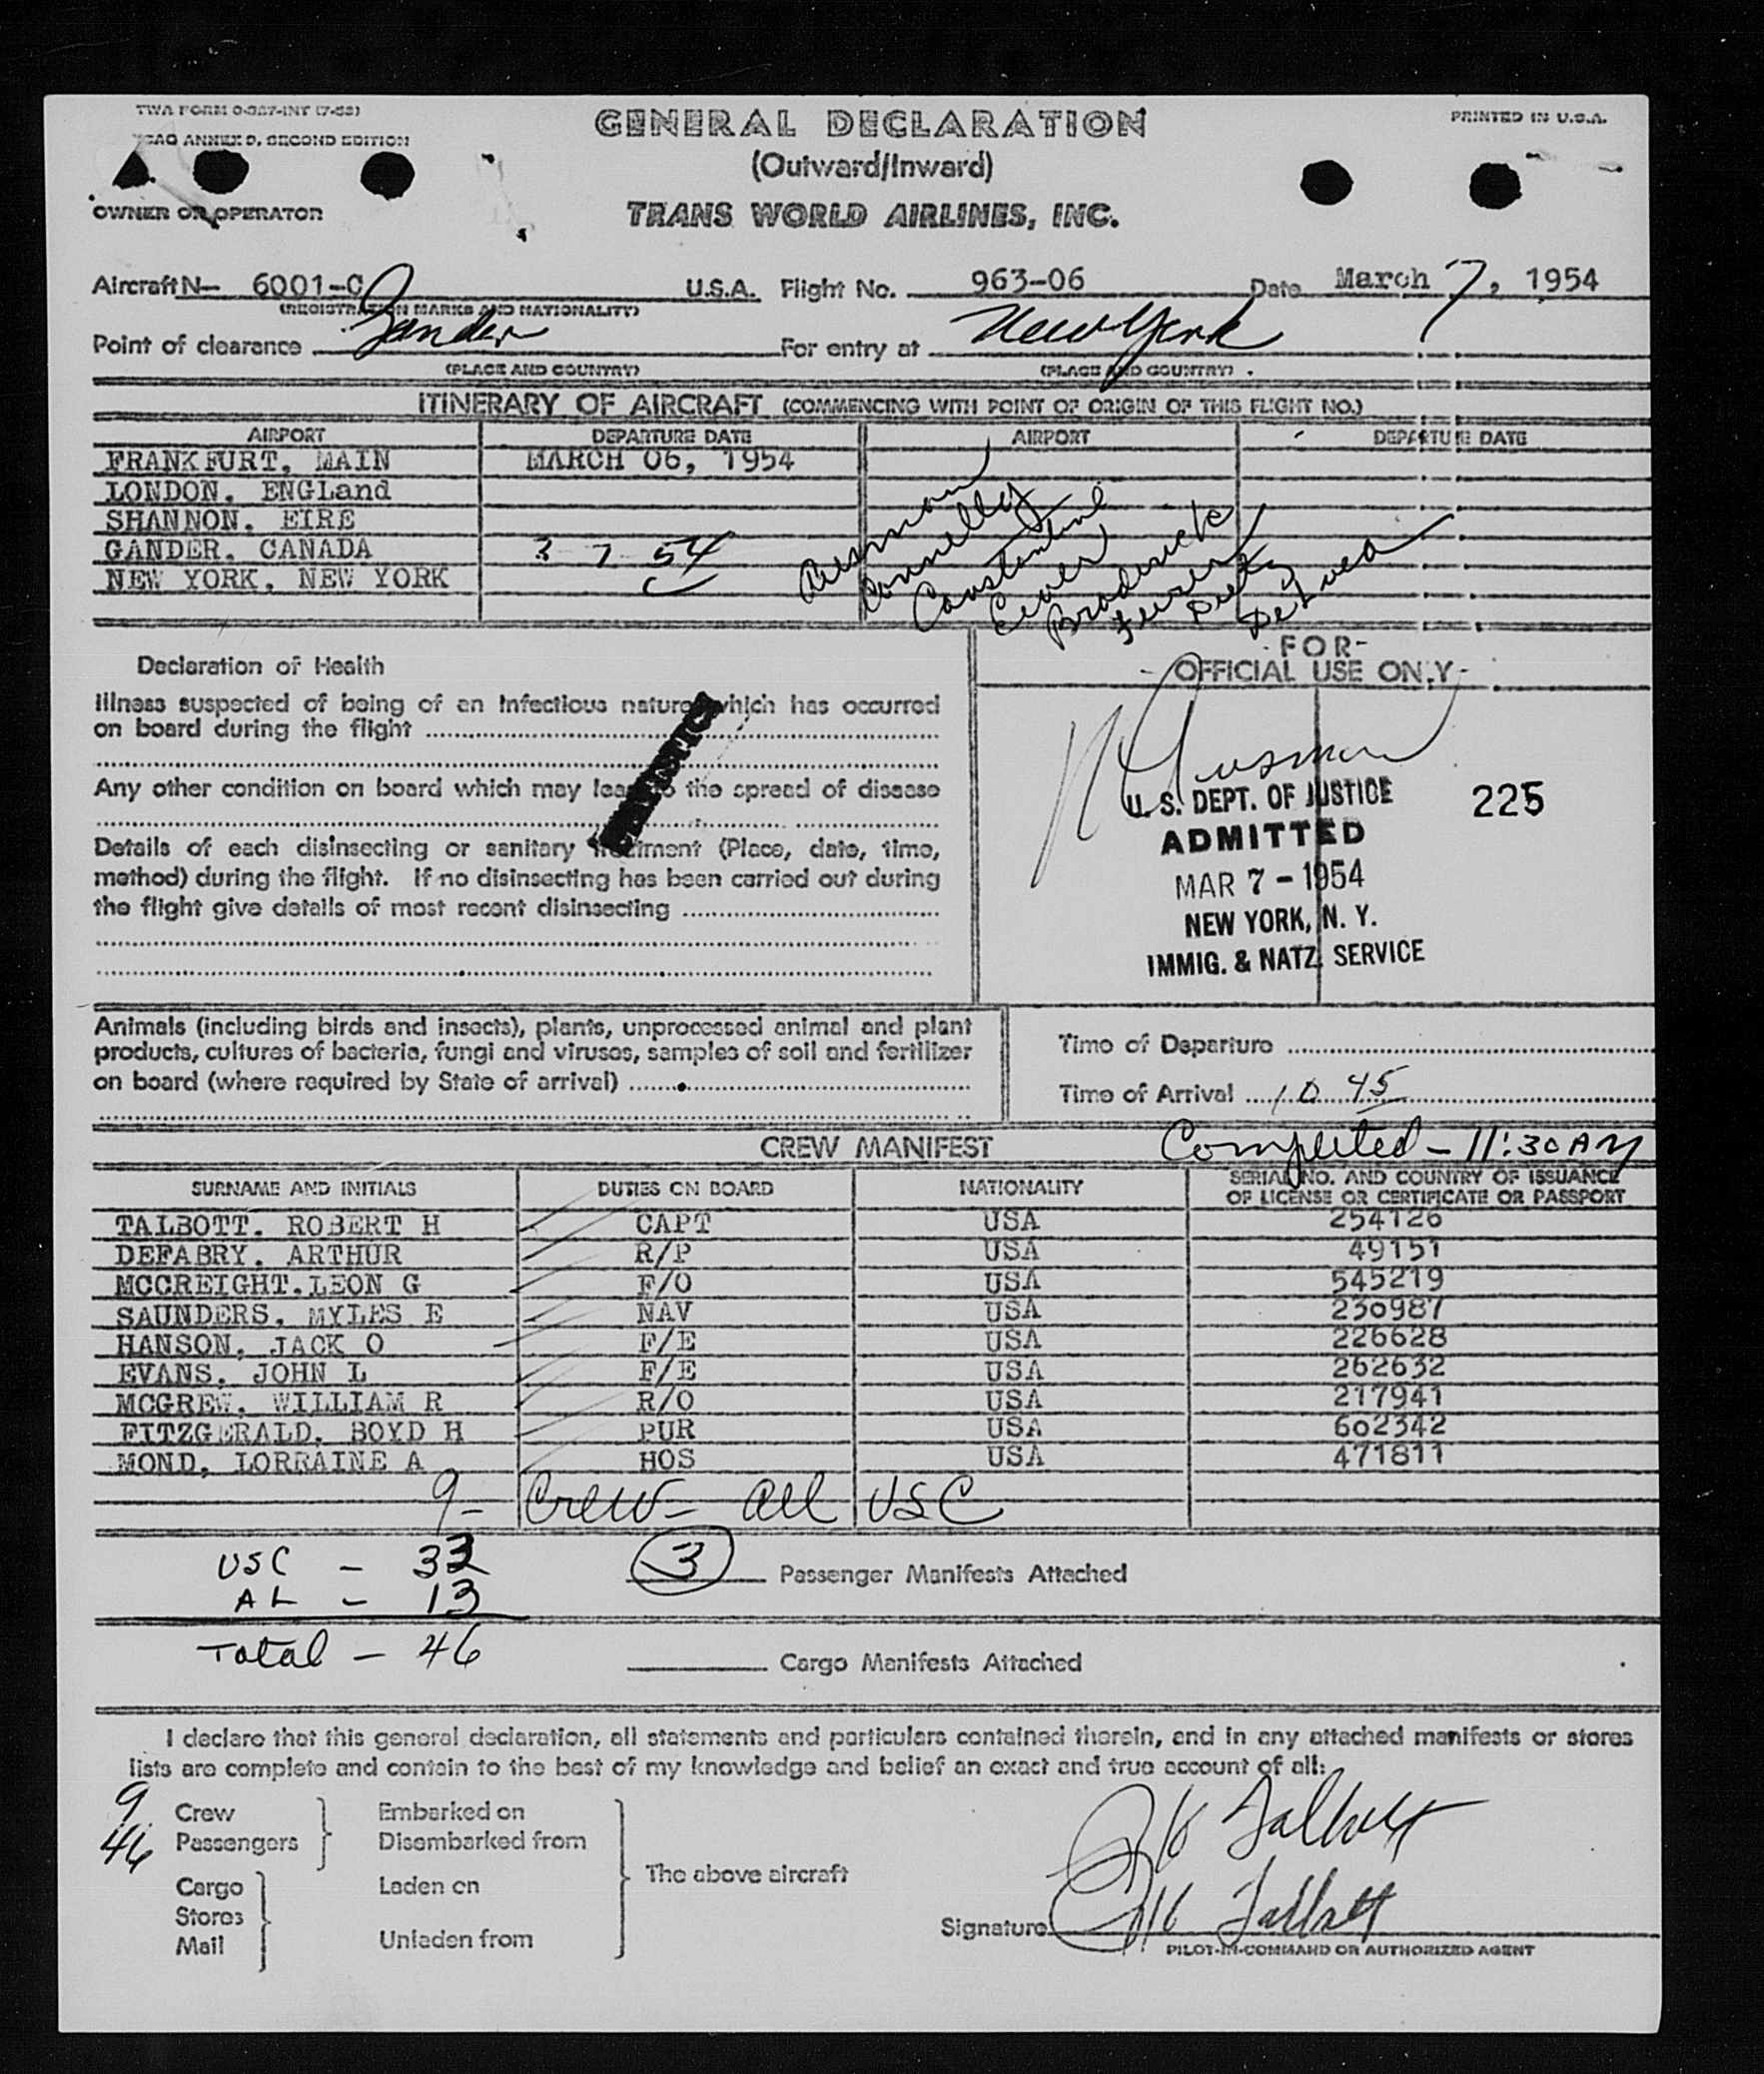 TWA FORM O-327-INT (7-53)
GENERAL DECLARATION
PRINTED IN U.S.A.
ICAO ANNEX 9, SECOND EDITION
(Outward/Inward)
OWNER OR OPERATOR
TRANS WORLD AIRLINES, INC.
Aircraft N- 6001-C U.S.A. Flight No. 963-06 Date March 7, 1954
(REGISTRATION MARKS AND NATIONALITY)
Point of clearance Gander For entry at New York
(PLACE AND COUNTRY) (PLACE AND COUNTRY)
ITINERARY OF AIRCRAFT (COMMENCING WITH POINT OF ORIGIN OF THIS FLIGHT NO.)
AIRPORT DEPARTURE DATE AIRPORT DEPARTURE DATE
FRANKFURT, MAIN MARCH 06, 1954
LONDON, ENGLand
SHANNON, EIRE
GANDER, CANADA 3 7 54
NEW YORK, NEW YORK
Connelly
Constantine
Broderick
Declaration of Health
FOR
OFFICIAL USE ONLY
Illness suspected of being of an infectious nature which has occurred
on board during the flight
Any other condition on board which may lead to the spread of disease
Details of each disinsecting or sanitary treatment (Place, date, time,
method) during the flight. If no disinsecting has been carried out during
the flight give details of most recent disinsecting
U. S. DEPT. OF JUSTICE
225
ADMITTED
MAR 7 - 1954
NEW YORK, N. Y.
IMMIG. & NATZ. SERVICE
Animals (including birds and insects), plants, unprocessed animal and plant
products, cultures of bacteria, fungi and viruses, samples of soil and fertilizer
on board (where required by State of arrival)
Time of Departure
Time of Arrival 10 45
CREW MANIFEST Completed - 11:30 AM
SURNAME AND INITIALS DUTIES ON BOARD NATIONALITY SERIAL NO. AND COUNTRY OF ISSUANCE
OF LICENSE OR CERTIFICATE OR PASSPORT
TALBOTT, ROBERT H CAPT USA 254126
DEFABRY, ARTHUR R/P USA 49151
MCCREIGHT, LEON G F/O USA 545219
SAUNDERS, MYLES E NAV USA 230987
HANSON, JACK O F/E USA 226628
EVANS, JOHN L F/E USA 262632
MCGREW, WILLIAM R R/O USA 217941
FITZGERALD, BOYD H PUR USA 602342
MOND, LORRAINE A HOS USA 471811
9 - Crew - all USC
USC - 33
3 Passenger Manifests Attached
AL - 13
Total - 46
Cargo Manifests Attached
I declare that this general declaration, all statements and particulars contained therein, and in any attached manifests or stores
lists are complete and contain to the best of my knowledge and belief an exact and true account of all:
9 Crew Embarked on
46 Passengers Disembarked from
The above aircraft
Cargo Laden on
Stores
Mail Unladen from
R H Talbott
Signature R H Talbott
PILOT-IN-COMMAND OR AUTHORIZED AGENT